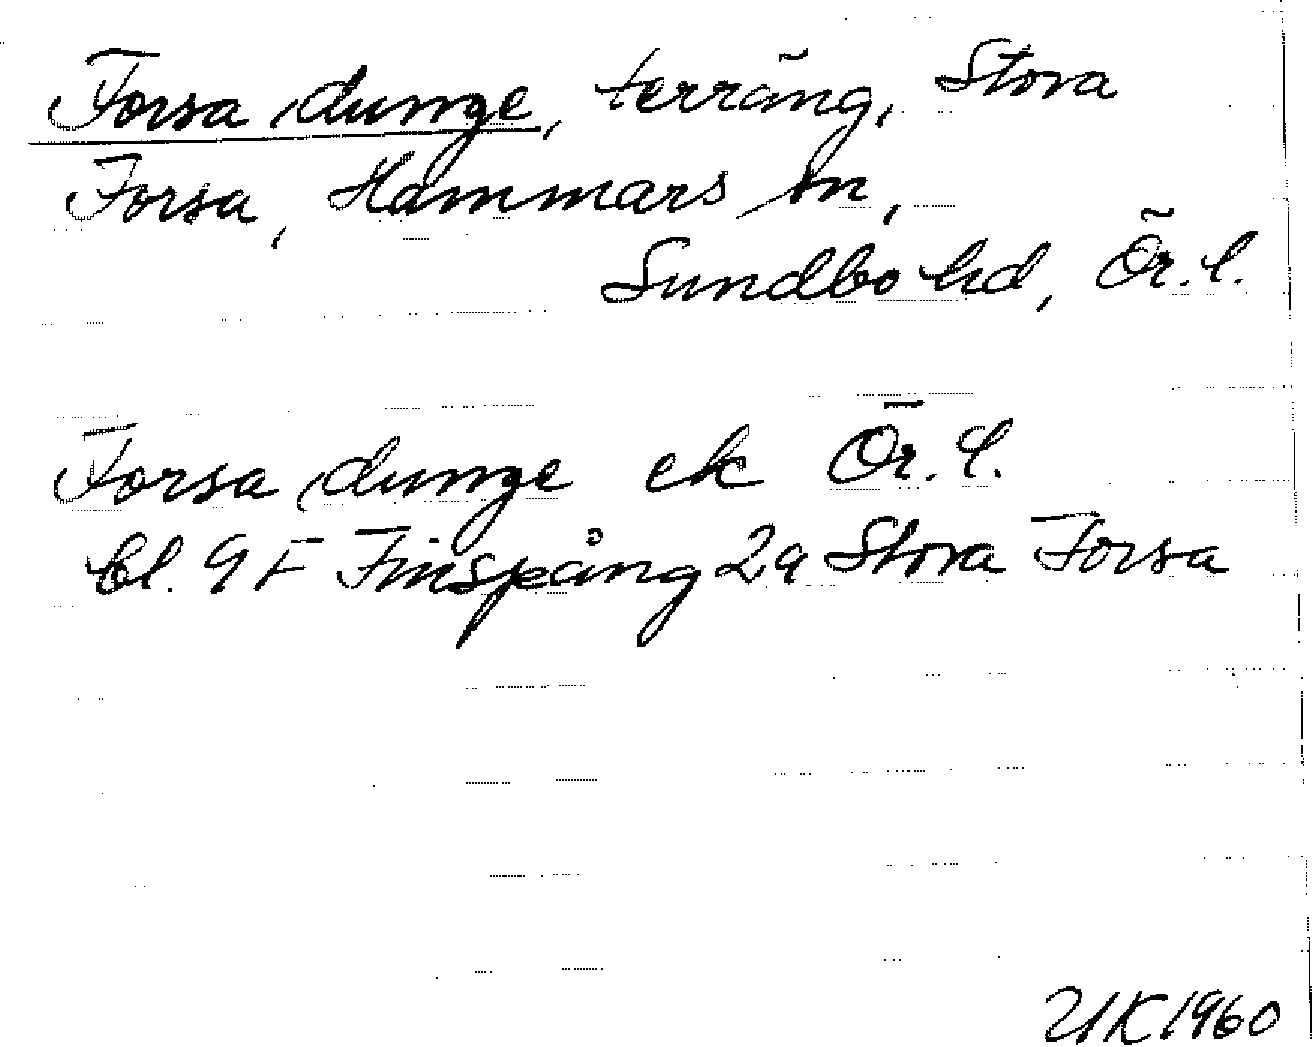 Forsa dunge, terräng, Stora
Forsa, Hammars sn,
Sundbo hd, Ör. l.
Forsa dunge ek Ör. l.
bl. 9F Finspång 2a Stora Forsa
UK 1960